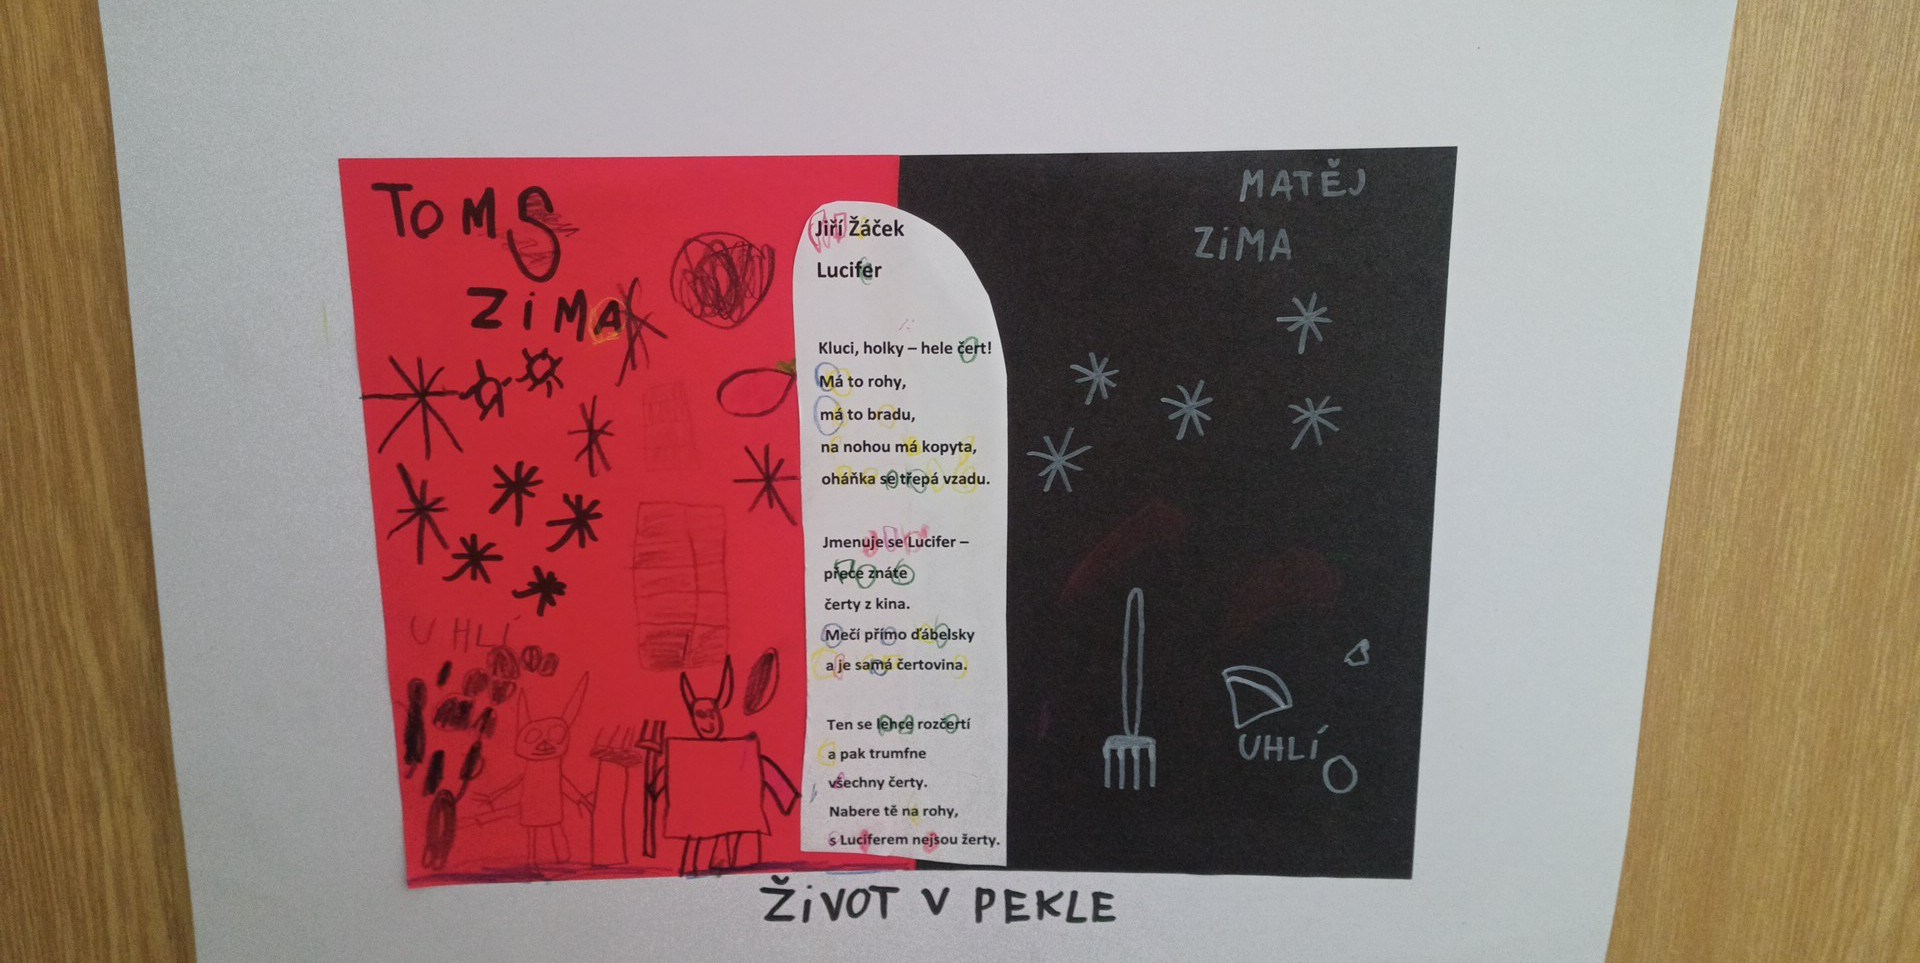 TOMS
ZiMA
UHLÍ
Jiří Žáček
Lucifer
Kluci, holky – hele čert!
Má to rohy,
má to bradu,
na nohou má kopyta,
oháňka se třepá vzadu.
Jmenuje se Lucifer –
přece znáte
čerty z kina.
Mečí přímo ďábelsky
a je samá čertovina.
Ten se lehce rozčertí
a pak trumfne
všechny čerty.
Nabere tě na rohy,
s Luciferem nejsou žerty.
MATĚJ
ZiMA
UHLÍ
ŽiVOT V PEKLE